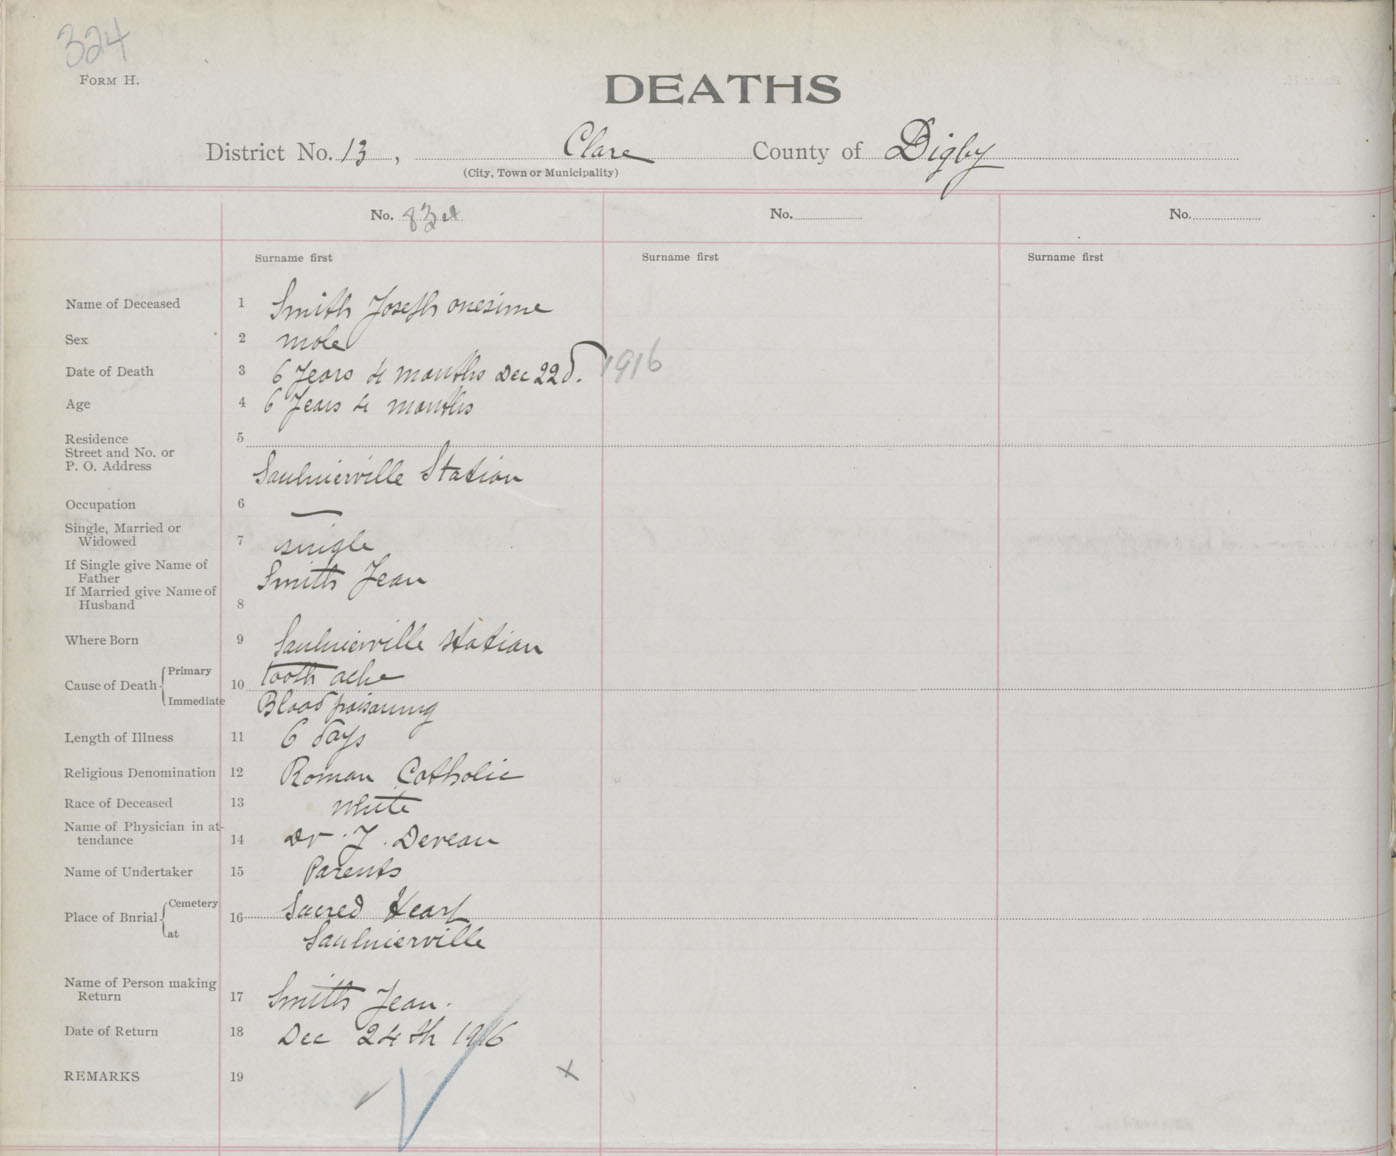 324
FORM H.
DEATHS
District No. 13, Clare County of Digby
(City, Town or Municipality)
No. No. No.
Surname first Surname first Surname first
Name of Deceased 1 Smith Joseph onesime
Sex 2 male
Date of Death 3 6 Years 4 months Dec 22d. 1916
Age 4 6 Years 4 months
Residence 5
Street and No. or
P. O. Address
Saulnierville Station
Occupation 6 —
Single, Married or
Widowed 7 single
If Single give Name of
Father Smith Jean
If Married give Name of
Husband 8
Where Born 9 Saulnierville station
Cause of Death Primary 10 tooth ache
Immediate Blood poisoning
Length of Illness 11 6 days
Religious Denomination 12 Roman Catholic
Race of Deceased 13 white
Name of Physician in at-
tendance 14 Dr. J. Deveau
Name of Undertaker 15 Parents
Place of Bnrial Cemetery 16 Sacred Heart
at Saulnierville
Name of Person making
Return 17 Smith Jean.
Date of Return 18 Dec 24th 1916
REMARKS 19 x